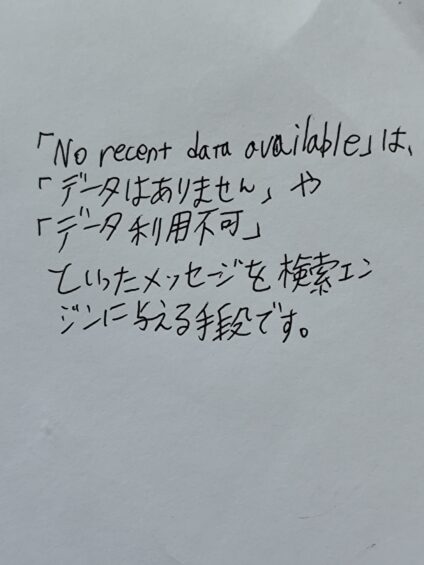 「No recent data available」は、
「データはありません」や
「データ利用不可」
といったメッセージを検索エン
ジンに与える手段です。